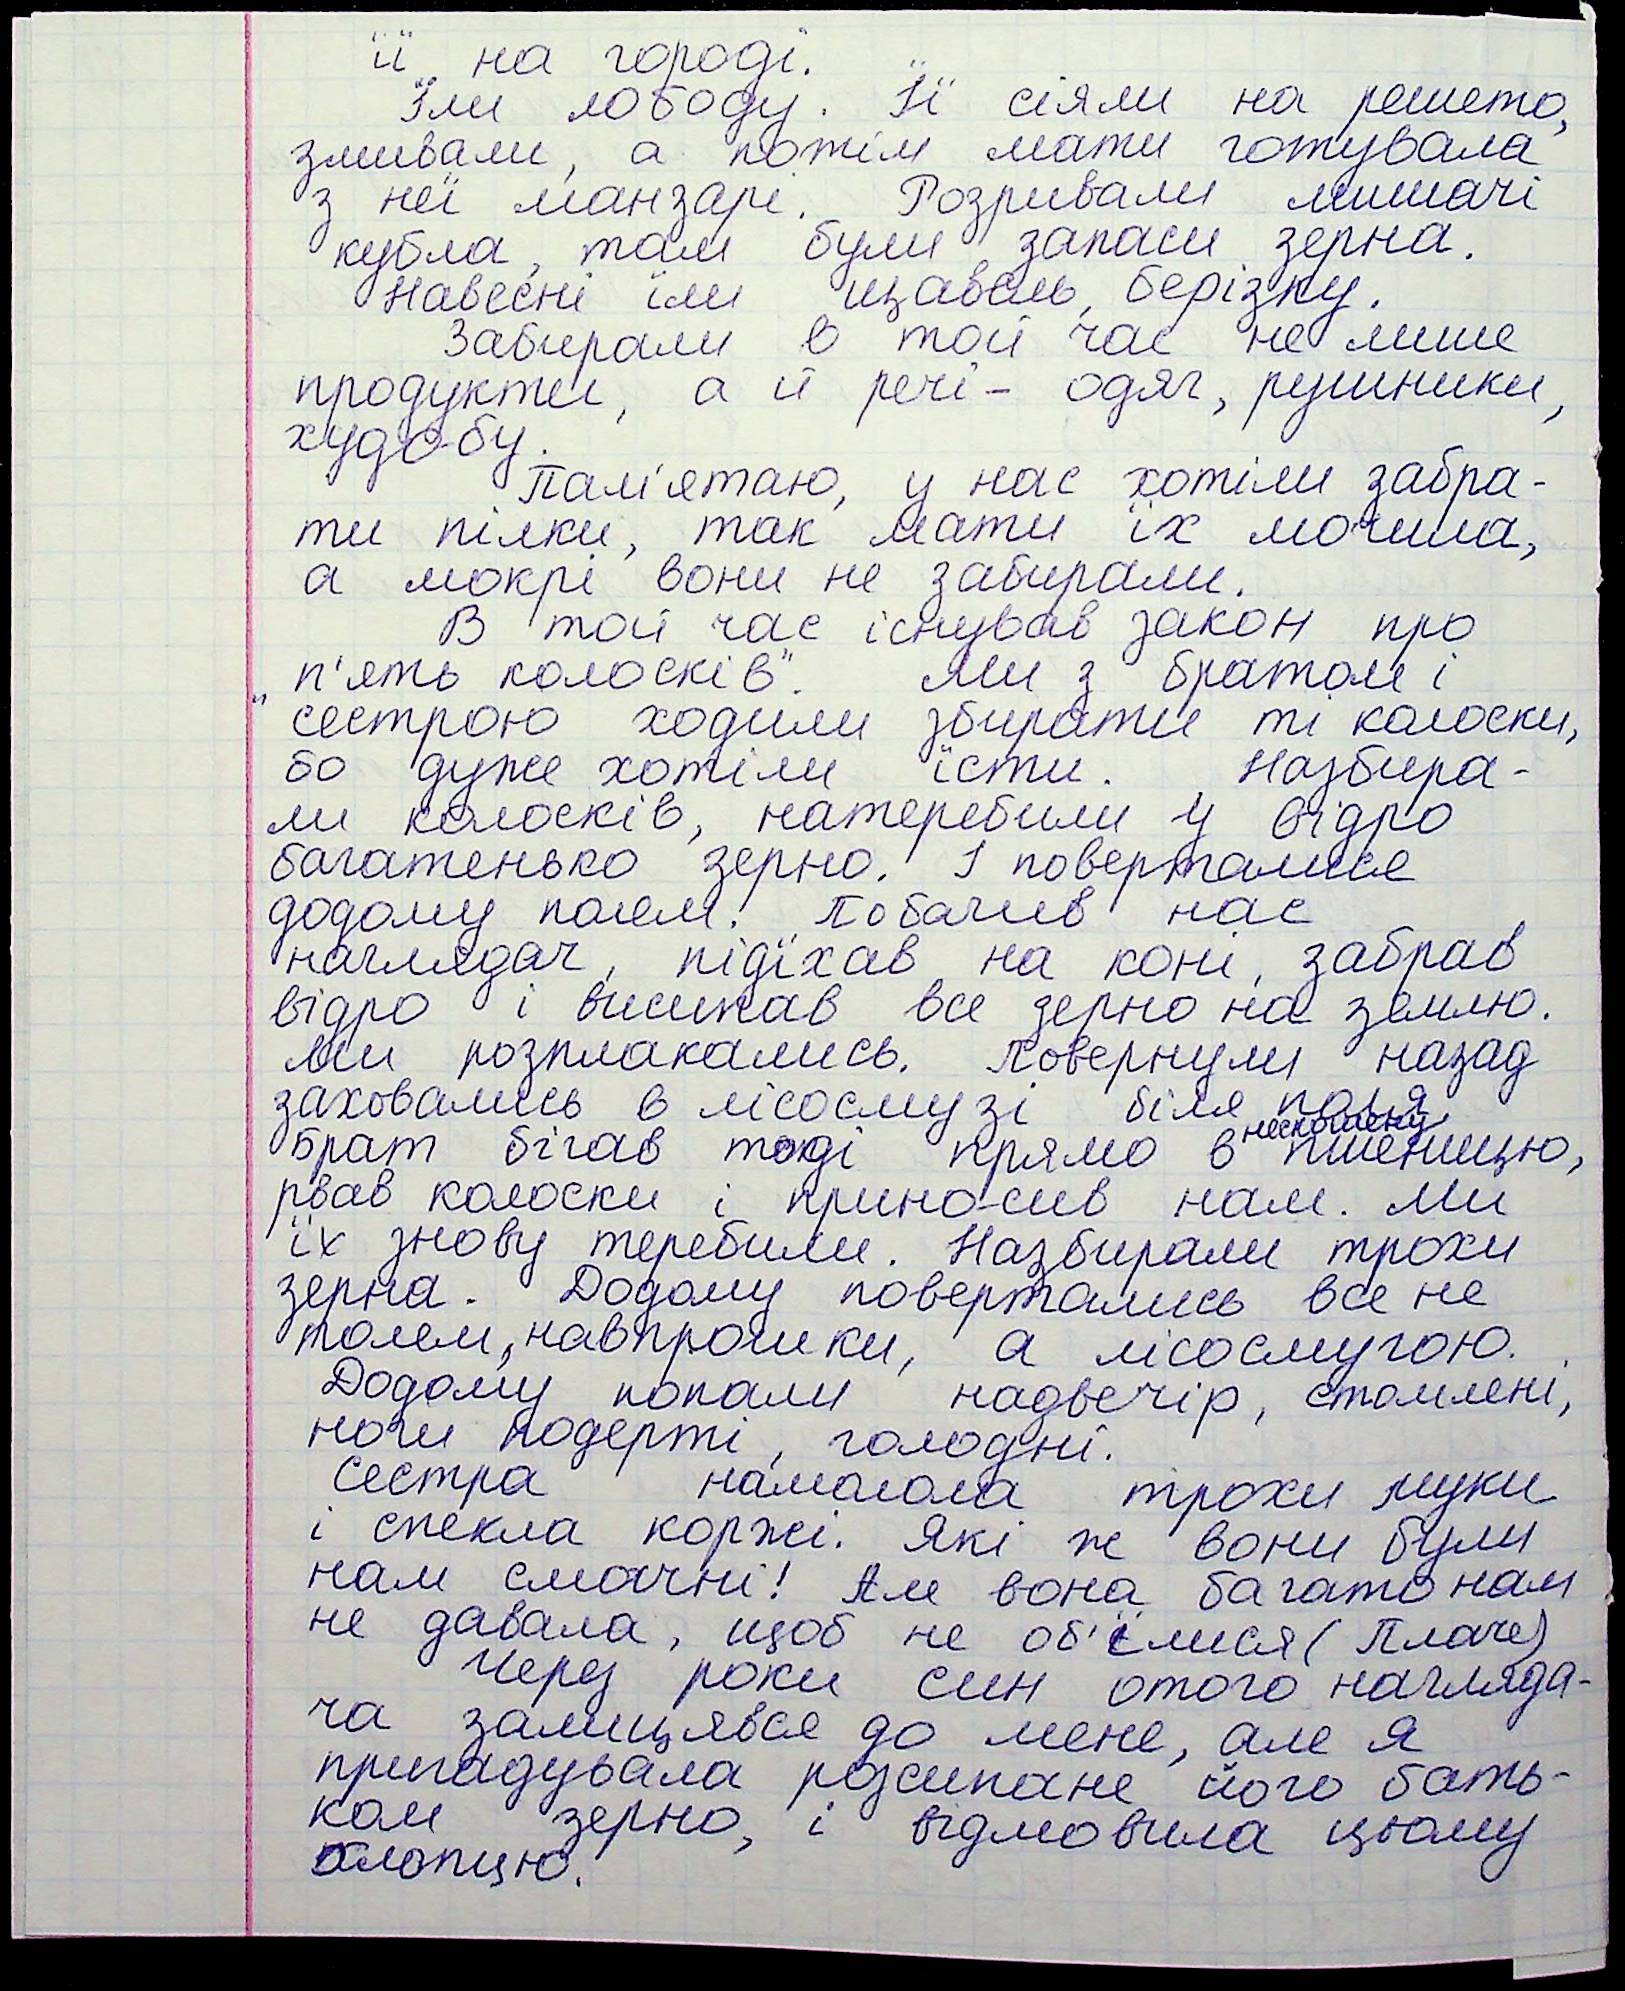 її на городі.
Їли лободу. Її сіяли на решето,
змивали, а потім мати готувала
з неї манзарі. Розривали мишачі
кубла, там були запаси зерна.
Навесні їли щавель, берізку.
Забирали в той час не лише
продукти, а й речі - одяг, рушники,
худобу.
Пам'ятаю, у нас хотіли забра-
ти пілки, так мати їх мочила,
а мокрі вони не забирали.
В той час існував закон про
„п'ять колосків". Ми з братом і
сестрою ходили збирати ті колоски,
бо дуже хотіли їсти. Назбира-
ли колосків, натеребили у відро
багатенько зерно. І поверталися
додому полем. Побачив нас
наглядач, під'їхав на коні, забрав
відро і висипав все зерно на землю.
Ми розплакались. Повернули назад
заховались в лісосмузі біля поля
Брат бігав тоді прямо в нескошену пшеницю,
рвав колоски і приносив нам. Ми
їх знову теребили. Назбирали трохи
зерна. Додому повертались вже не
полем, навпрошки, а лісосмугою.
Додому попали надвечір, стомлені,
ноги подерті, голодні.
Сестра намолола трохи муки
і спекла коржі. Які ж вони були
нам смачні! Але вона багато нам
не давала, щоб не об'їлися (Плаче)
Через роки син отого нагляда-
ча залицявся до мене, але я
пригадувала розсипане його бать-
ком зерно, і відмовила цьому
хлопцю.